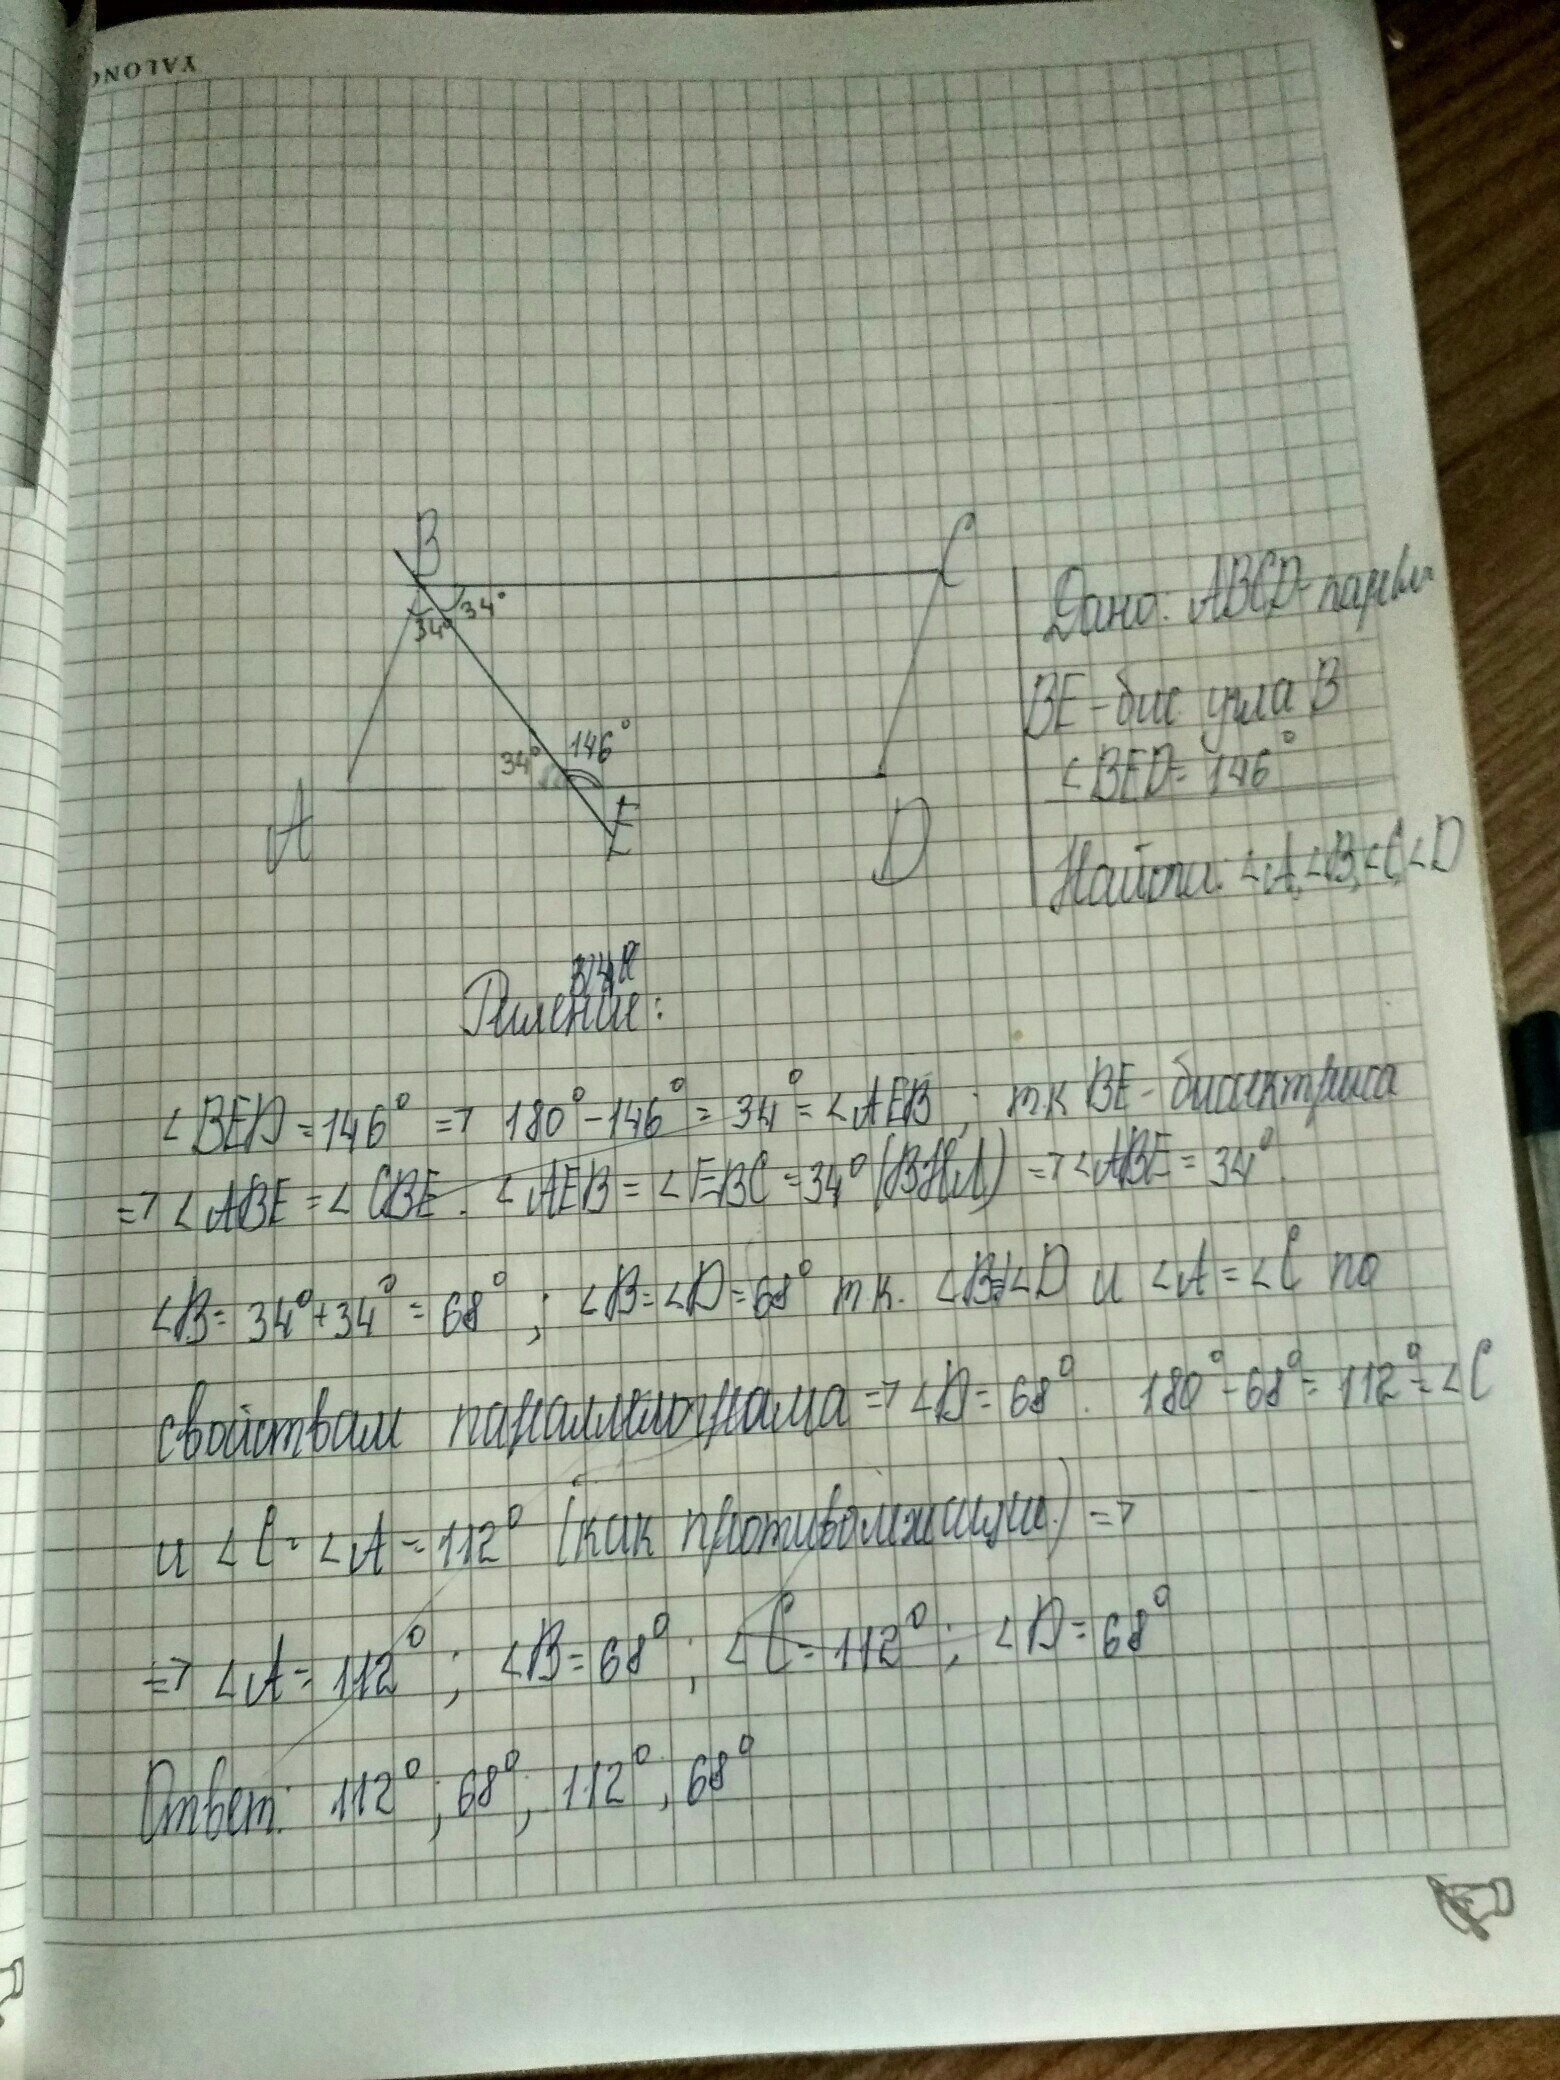 YALONG
B
C
34°
34°
146°
34°
A
E
D
Дано: ABCD-парал
BE-бис угла B
∠BED=146°
Найти: ∠A,∠B,∠C,∠D
Решение:
∠BED=146° => 180°-146°=34°=∠AEB; тк BE-биссектриса
=> ∠ABE=∠CBE. ∠AEB=∠EBC=34°(ВНЛ) => ∠ABE=34°.
∠B=34°+34°=68°; ∠B=∠D=68° тк. ∠B=∠D и ∠A=∠C по
свойствам параллелограма => ∠D=68°. 180°-68°=112°=∠C
и ∠C=∠A=112° (как противолежищие) =>
=> ∠A=112°; ∠B=68°; ∠C=112°; ∠D=68°
Ответ: 112°; 68°; 112°; 68°